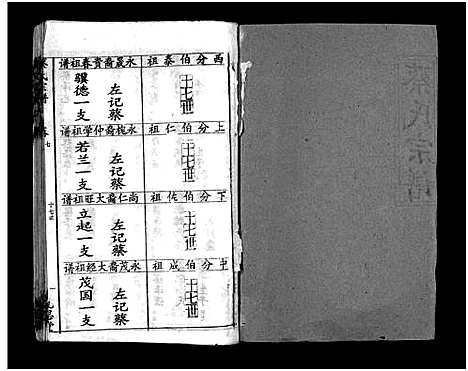 西分伯泰祖
十七世
永晟裔贵春祖谱
左记蔡
骥德一支
上分伯仁祖
十七世
永槐裔仲学祖谱
左记蔡
若兰一支
下分伯佐祖
十七世
尚仁裔大旺祖谱
左记蔡
立起一支
中分伯成祖
十七世
永茂裔大经祖谱
左记蔡
茂国一支
蔡氏宗谱